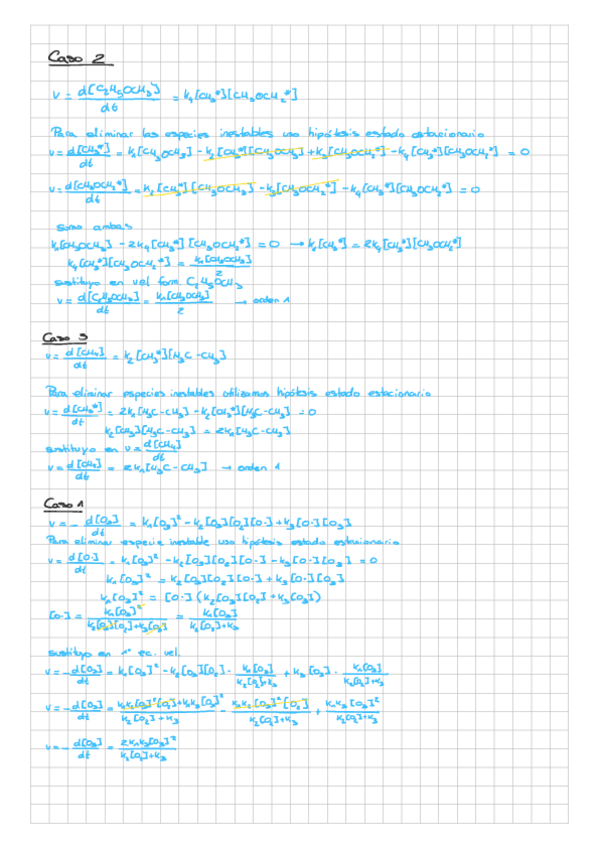 Caso 2
v = d[C₂H₅OCH₃]/dt = k₄[CH₃*][CH₃OCH₂*]
Para eliminar las especies inestables uso hipótesis estado estacionario
v = d[CH₃*]/dt = k₁[CH₃OCH₃] - k₂[CH₃*][CH₃OCH₃] + k₃[CH₃OCH₂*] - k₄[CH₃*][CH₃OCH₂*] = 0
v = d[CH₃OCH₂*]/dt = k₂[CH₃*][CH₃OCH₃] - k₃[CH₃OCH₂*] - k₄[CH₃*][CH₃OCH₂*] = 0
Sumo ambas
k₁[CH₃OCH₃] - 2k₄[CH₃*][CH₃OCH₂*] = 0 → k₁[CH₃*] = 2k₄[CH₃*][CH₃OCH₂*]
k₄[CH₃*][CH₃OCH₂*] = k₁[CH₃OCH₃]/2
sustituyo en vel form. C₂H₅OCH₃
v = d[C₂H₅OCH₃]/dt = k₁[CH₃OCH₃]/2 → orden 1
Caso 3
v = d[CH₄]/dt = k₂[CH₃*][H₃C-CH₃]
Para eliminar especies inestables utilizamos hipótesis estado estacionario
v = d[CH₃*]/dt = 2k₁[H₃C-CH₃] - k₂[CH₃*][H₃C-CH₃] = 0
k₂[CH₃][H₃C-CH₃] = 2k₁[H₃C-CH₃]
sustituyo en v = d[CH₄]/dt
v = d[CH₄]/dt = 2k₁[H₃C-CH₃] → orden 1
Caso 1
v = - d[O₃]/dt = k₁[O₃]² - k₂[O₃][O₂][O·] + k₃[O·][O₃]
Para eliminar especie inestable uso hipótesis estado estacionario
v = d[O·]/dt = k₁[O₃]² - k₂[O₃][O₂][O·] - k₃[O·][O₃] = 0
k₁[O₃]² = k₂[O₃][O₂][O·] + k₃[O·][O₃]
k₁[O₃]² = [O·](k₂[O₃][O₂] + k₃[O₃])
[O·] = k₁[O₃]²/k₂[O₃][O₂]+k₃[O₃] = k₁[O₃]/k₂[O₂]+k₃
sustituyo en 1ª ec. vel.
v = - d[O₃]/dt = k₁[O₃]² - k₂[O₃][O₂] · k₁[O₃]/k₂[O₂]+k₃ + k₃[O₃] · k₁[O₃]/k₂[O₂]+k₃
v = - d[O₃]/dt = k₁k₂[O₃]²[O₂]+k₁k₃[O₃]²/k₂[O₂]+k₃ - k₁k₂[O₃]²[O₂]/k₂[O₂]+k₃ + k₁k₃[O₃]²/k₂[O₂]+k₃
v = - d[O₃]/dt = 2k₁k₃[O₃]²/k₂[O₂]+k₃